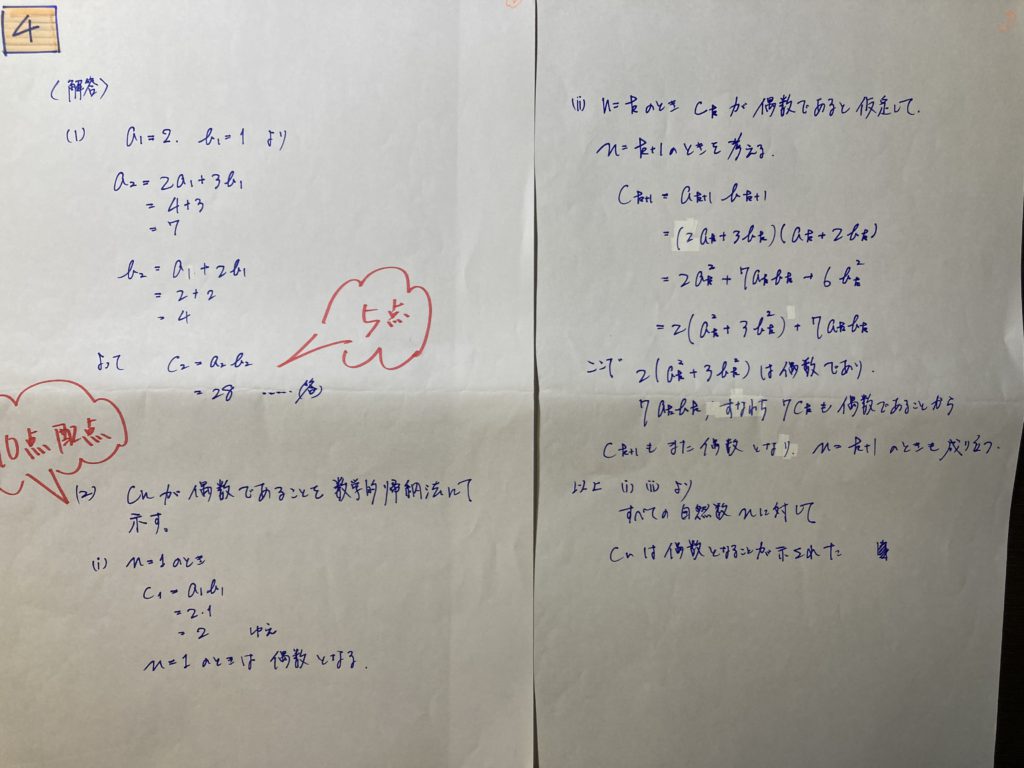 4
(解答)
(1) a₁=2. b₁=1 より
a₂ = 2a₁+3b₁
= 4+3
= 7
b₂ = a₁+2b₁
= 2+2
= 4
5点
よって C₂ = a₂b₂
= 28 …… (答)
10点配点
(2) Cnが偶数であることを数学的帰納法にて
示す。
(i) n=1のとき
C₁ = a₁b₁
= 2·1
= 2 ゆえ
n=1のときは偶数となる.
(ii) n=kのとき Ckが偶数であると仮定して.
n=k+1のときを考える.
Ck+1 = ak+1 bk+1
= (2ak+3bk)(ak+2bk)
= 2ak²+7akbk+6bk²
= 2(ak²+3bk²)+7akbk
ここで 2(ak²+3bk²)は偶数であり.
7akbk, すなわち 7Ckも偶数であることから
Ck+1もまた偶数となり. n=k+1のときも成り立つ.
以上 (i) (ii) より
すべての自然数nに対して
Cnは偶数となることが示された